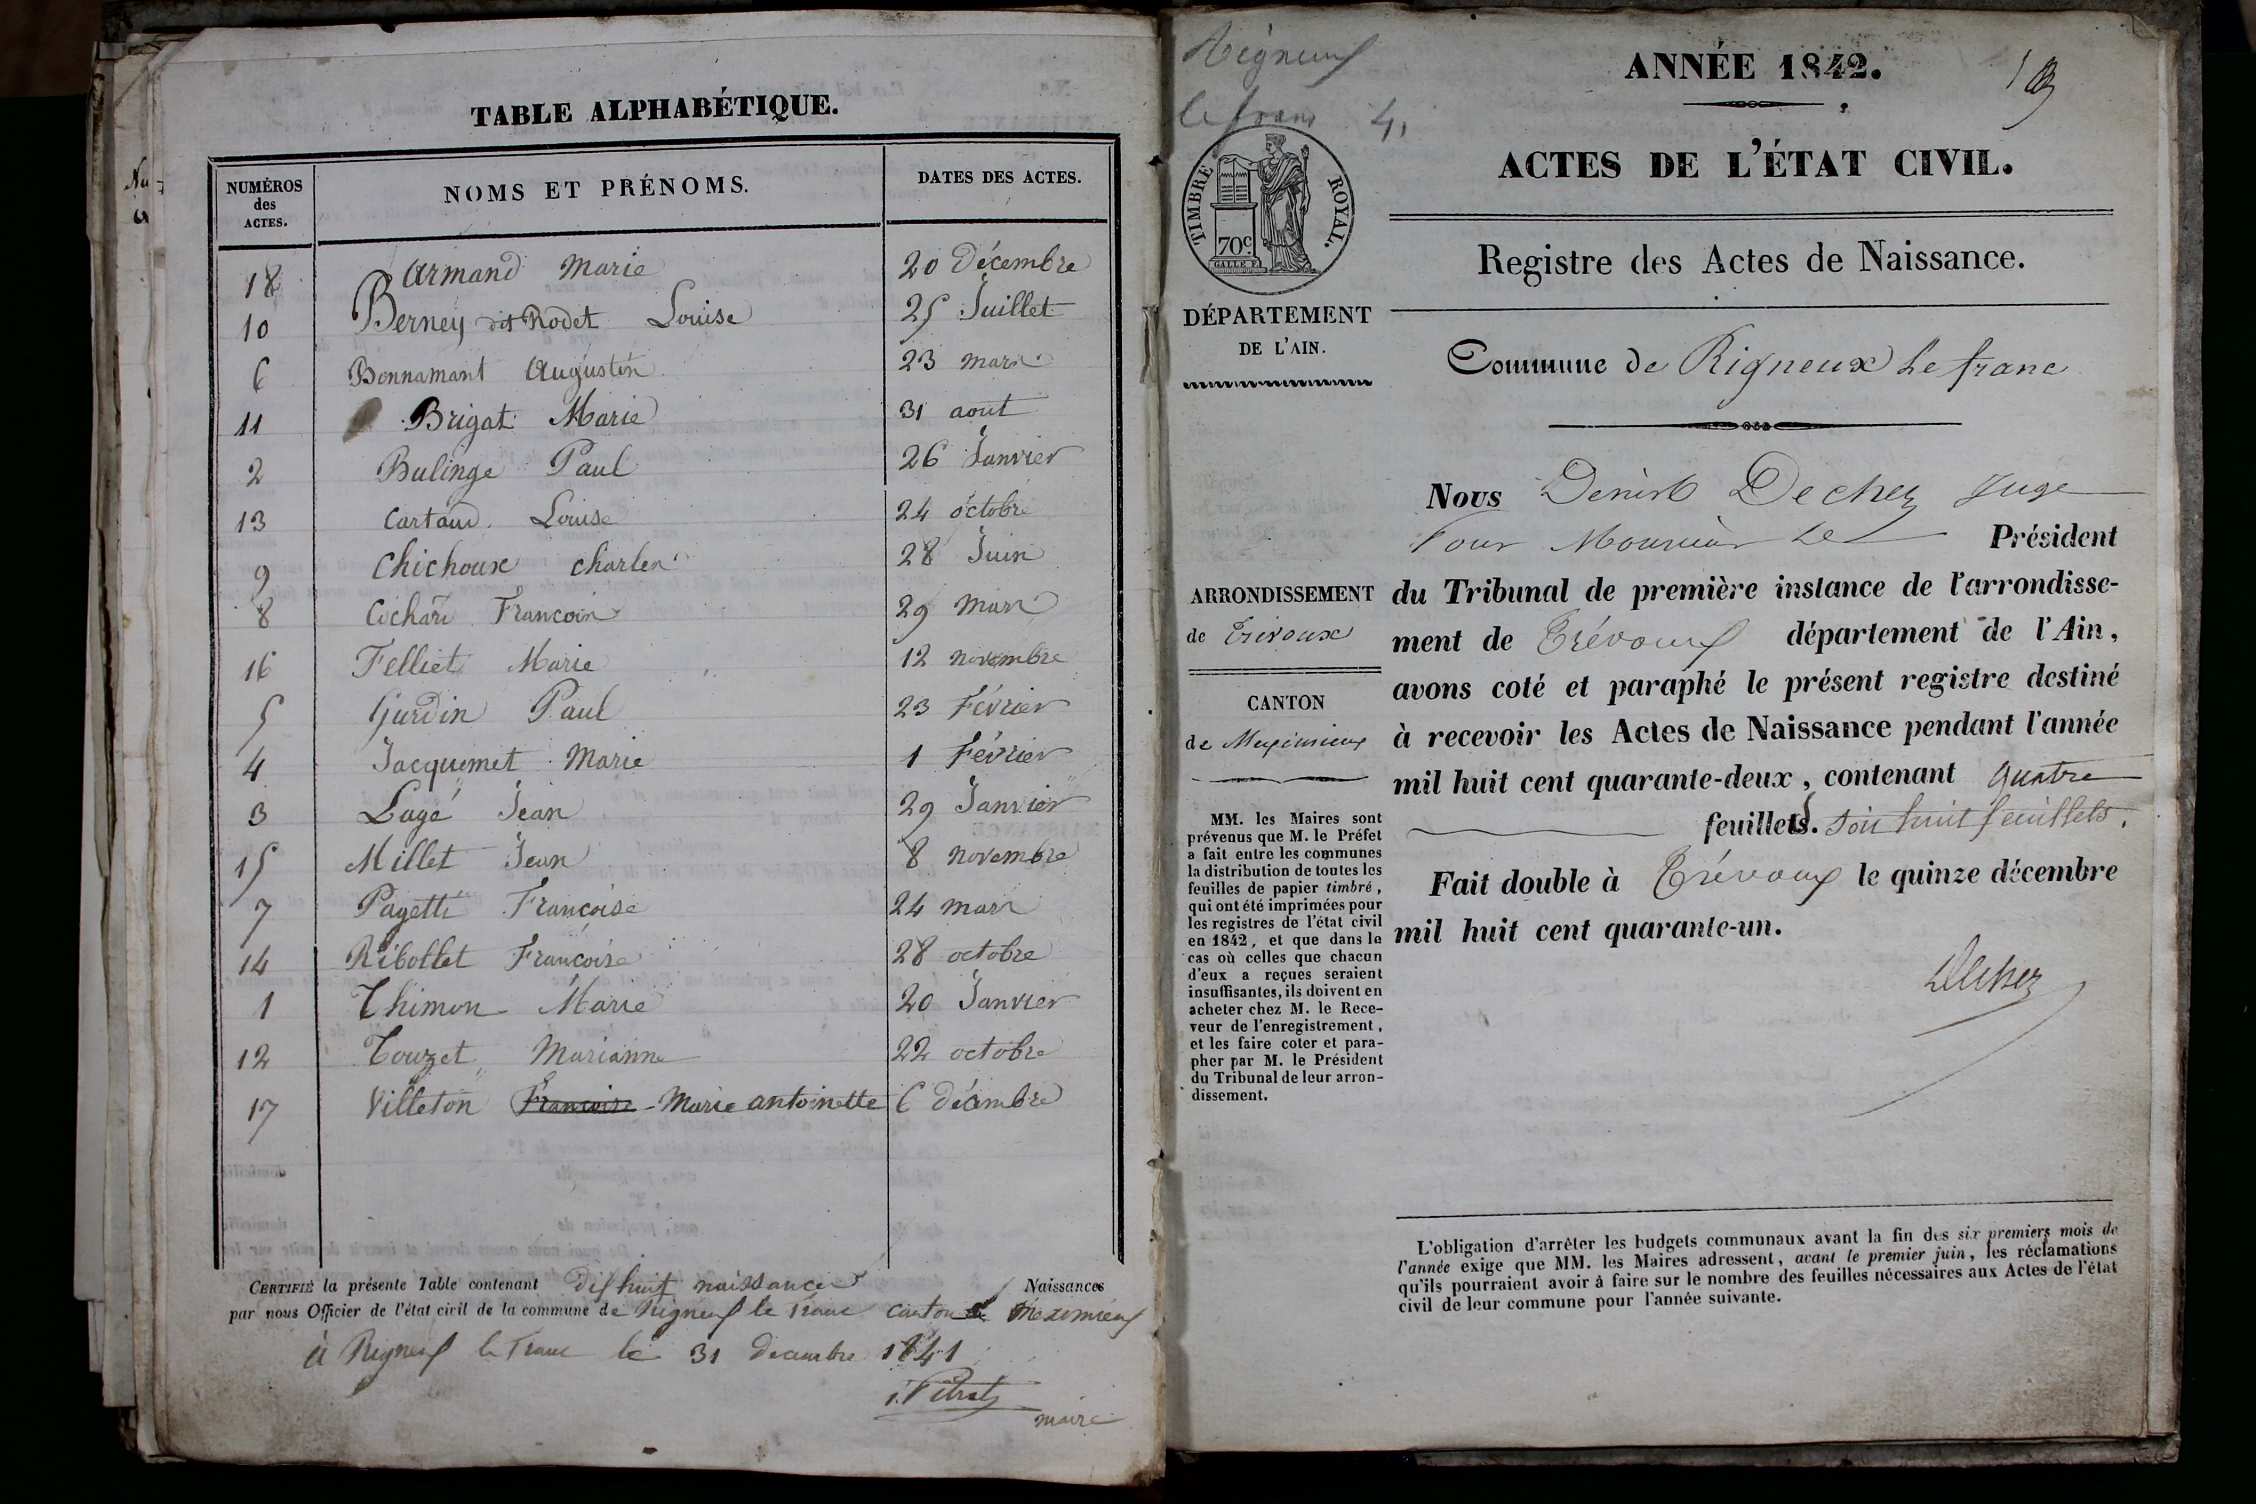 TABLE ALPHABÉTIQUE.
NUMÉROS des ACTES. NOMS ET PRÉNOMS. DATES DES ACTES.
18 Armand Marie 20 Décembre
10 Berney dit Rodet Louise 25 Juillet
6 Bonnamant Augustin 23 mars
11 Brigat Marie 31 aout
2 Bulinge Paul 26 Janvier
13 Cartaud Louise 24 octobre
9 Chichoux charles 28 Juin
8 Cochard Francois 29 Mars
16 Felliet Marie 12 novembre
5 Gurdin Paul 23 Février
4 Jacquemet Marie 1 Février
3 Lagé Jean 29 Janvier
15 Millet Jean 8 novembre
7 Pagetti Françoise 24 mars
14 Ribollet Françoise 28 octobre
1 Thimon Marie 20 Janvier
12 Touzet Marianne 22 octobre
17 Villeton Françoise Marie antoinette 6 décembre
CERTIFIÉ la présente Table contenant dix huit naissances Naissances
par nous Officier de l'état civil de la commune de Rigneux le Franc canton de Meximieux
à Rigneux le Franc le 31 decembre 1841
maire
Rigneux
le franc 4.
ANNÉE 1842.
ACTES DE L'ÉTAT CIVIL.
TIMBRE ROYAL.
70c
Registre des Actes de Naissance.
DÉPARTEMENT
DE L'AIN.
Commune de Rigneux le franc
Nous Denis Dechez Juge
Pour Monsieur le Président
ARRONDISSEMENT
de Trévoux
du Tribunal de première instance de l'arrondisse-
ment de Trévoux département de l'Ain,
avons coté et paraphé le présent registre destiné
CANTON
de Meximieux
à recevoir les Actes de Naissance pendant l'année
mil huit cent quarante-deux, contenant quatre
feuillets. soit huit feuillets.
Fait double à Trévoux le quinze décembre
mil huit cent quarante-un.
Dechez
MM. les Maires sont
prévenus que M. le Préfet
a fait entre les communes
la distribution de toutes les
feuilles de papier timbré,
qui ont été imprimées pour
les registres de l'état civil
en 1842, et que dans le
cas où celles que chacun
d'eux a reçues seraient
insuffisantes, ils doivent en
acheter chez M. le Rece-
veur de l'enregistrement,
et les faire coter et para-
pher par M. le Président
du Tribunal de leur arron-
dissement.
L'obligation d'arrêter les budgets communaux avant la fin des six premiers mois de
l'année exige que MM. les Maires adressent, avant le premier juin, les réclamations
qu'ils pourraient avoir à faire sur le nombre des feuilles nécessaires aux Actes de l'état
civil de leur commune pour l'année suivante.